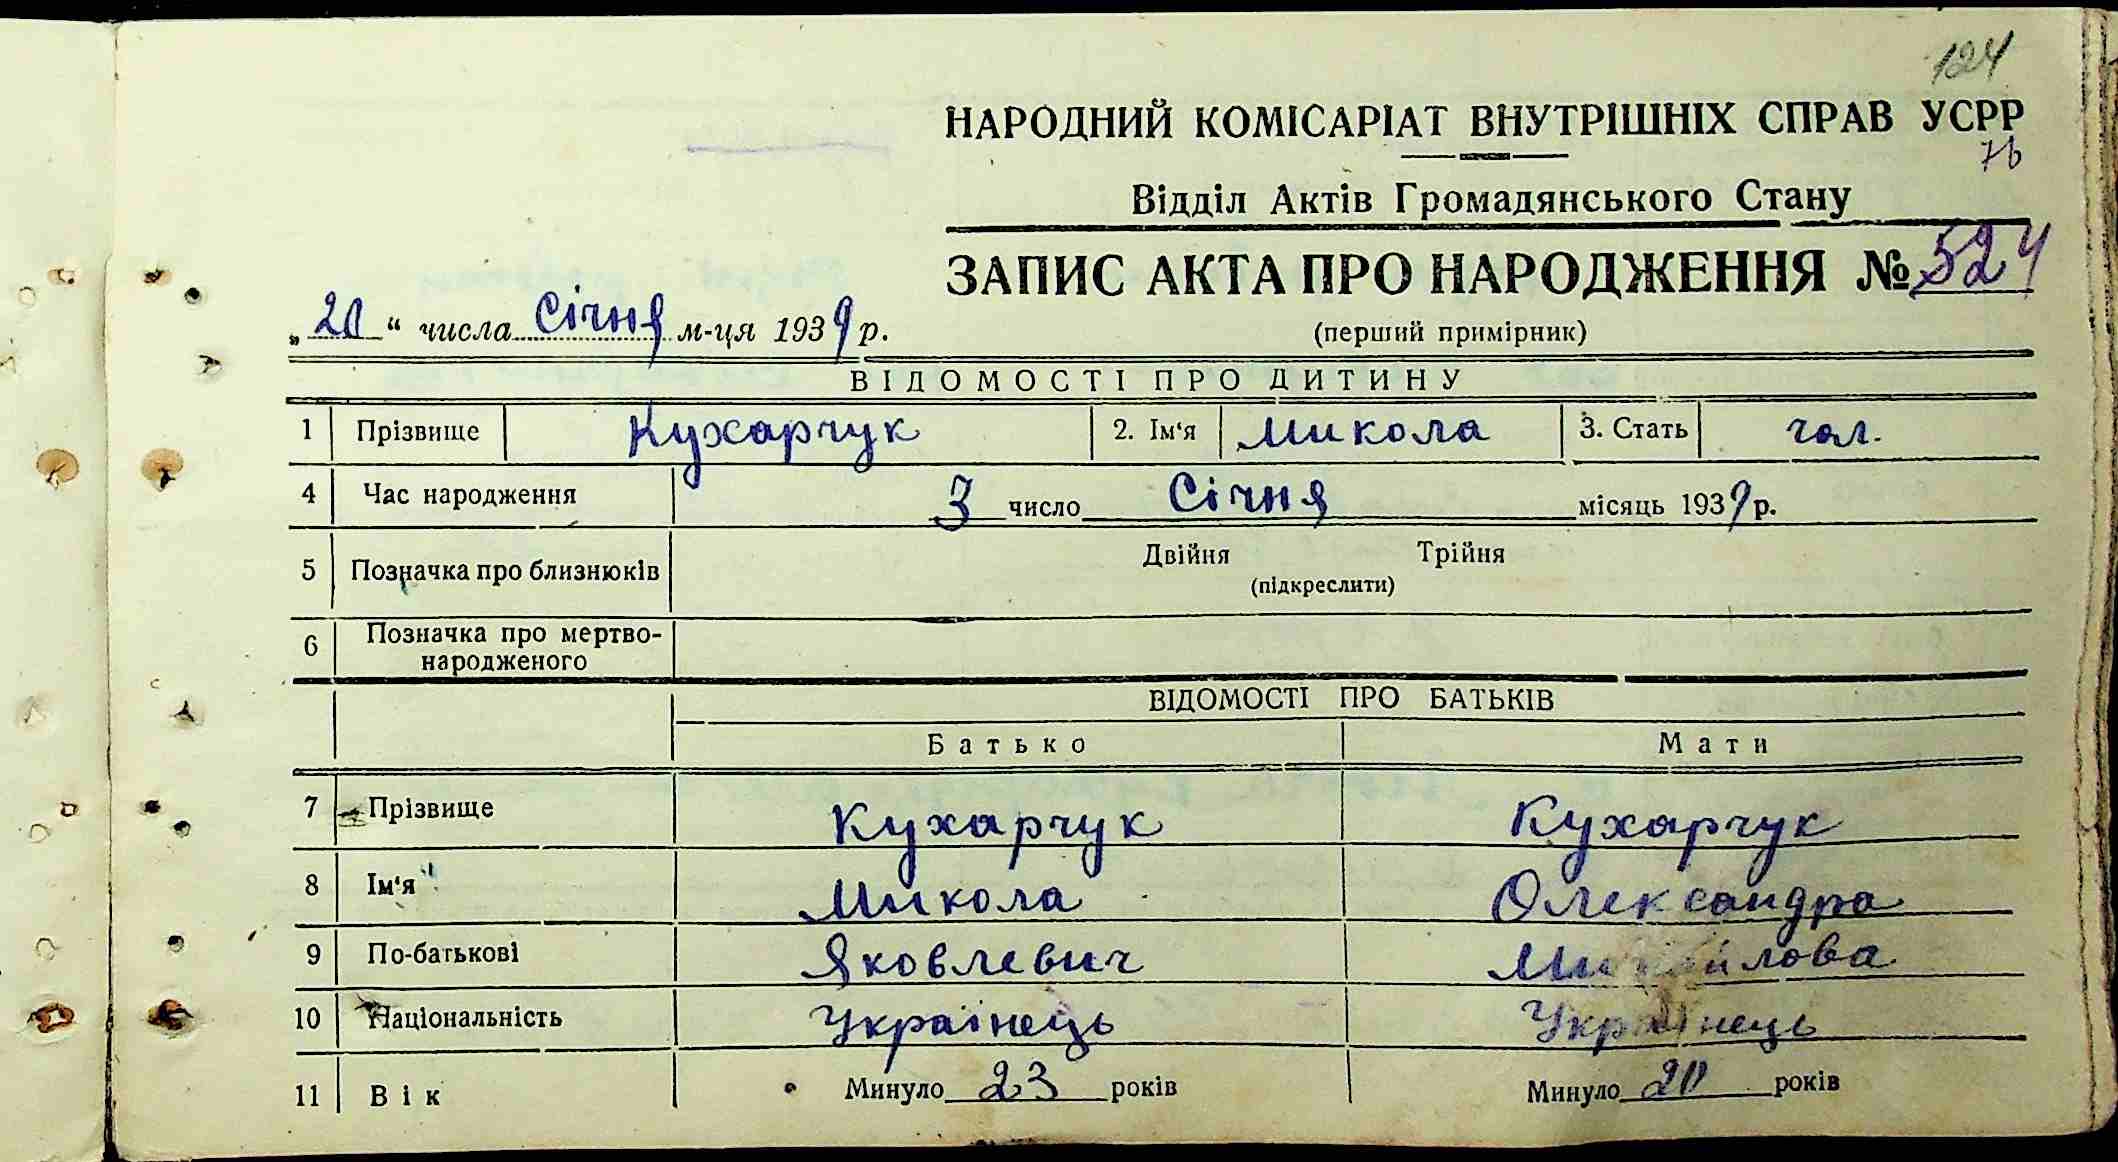 124
НАРОДНИЙ КОМІСАРІАТ ВНУТРІШНІХ СПРАВ УСРР
76
Відділ Актів Громадянського Стану
ЗАПИС АКТА ПРО НАРОДЖЕННЯ № 524
„20“ числа Січня м-ця 1939 р.
(перший примірник)
ВІДОМОСТІ ПРО ДИТИНУ
1 Прізвище Кухарчук 2. Ім‘я Микола 3. Стать чол.
4 Час народження 3 число Січня місяць 1939 р.
5 Позначка про близнюків Двійня Трійня
(підкреслити)
6 Позначка про мертво-
народженого
ВІДОМОСТІ ПРО БАТЬКІВ
Батько Мати
7 Прізвище Кухарчук Кухарчук
8 Ім‘я Микола Олександра
9 По-батькові Яковлевич Михайлова
10 Національність Українець Українець
11 Вік Минуло 23 років Минуло 20 років